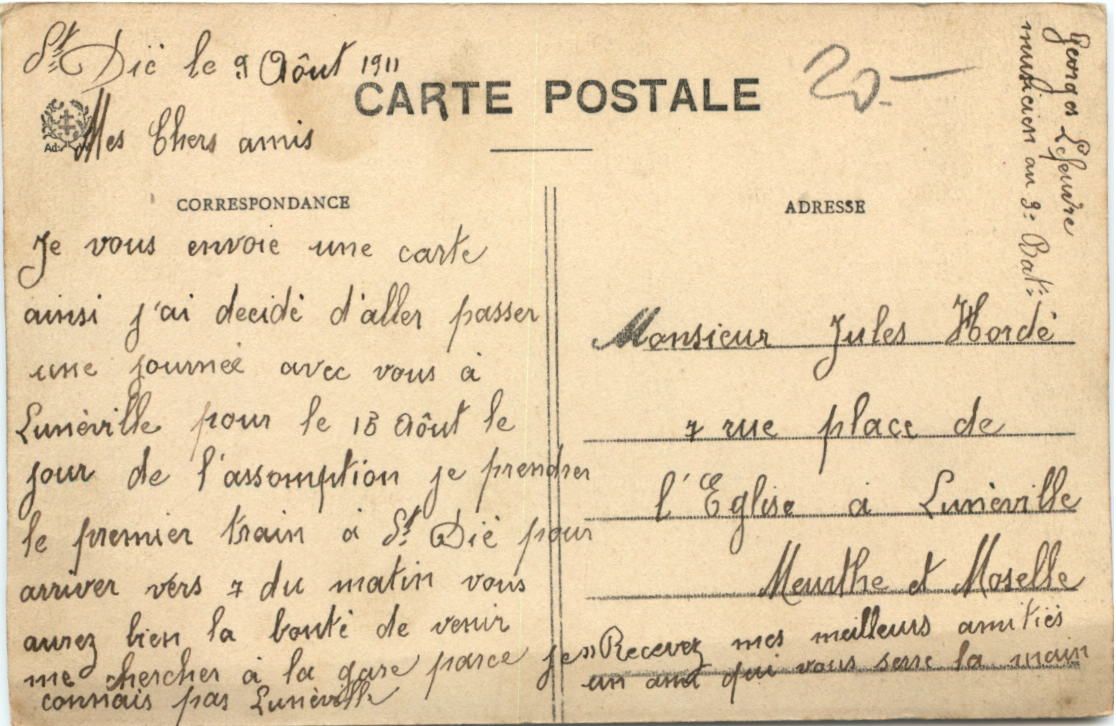 St Dié le 9 Aôut 1911
CARTE POSTALE
20.-
Mes Chers amis
CORRESPONDANCE
Je vous envoie une carte
ainsi j'ai decidé d'aller passer
une journeé avec vous à
Lunéville pour le 15 Aôut le
jour de l'assomption je prendrer
le premier train à St Dié pour
arriver vers 7 du matin vous
aurez bien la bonté de venir
me chercher à la gare parce je
connais pas Lunéville
Georges Lefeuvre
musicien au 3e Bat:
ADRESSE
Monsieur Jules Hordé
7 rue place de
l'Eglise à Lunéville
Meurthe et Moselle
Recevez mes meilleurs amitiés
un ami qui vous serre la main